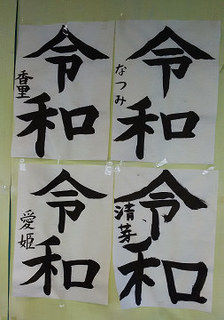 令和
香里
令和
なつみ
令和
愛姫
令和
清芽